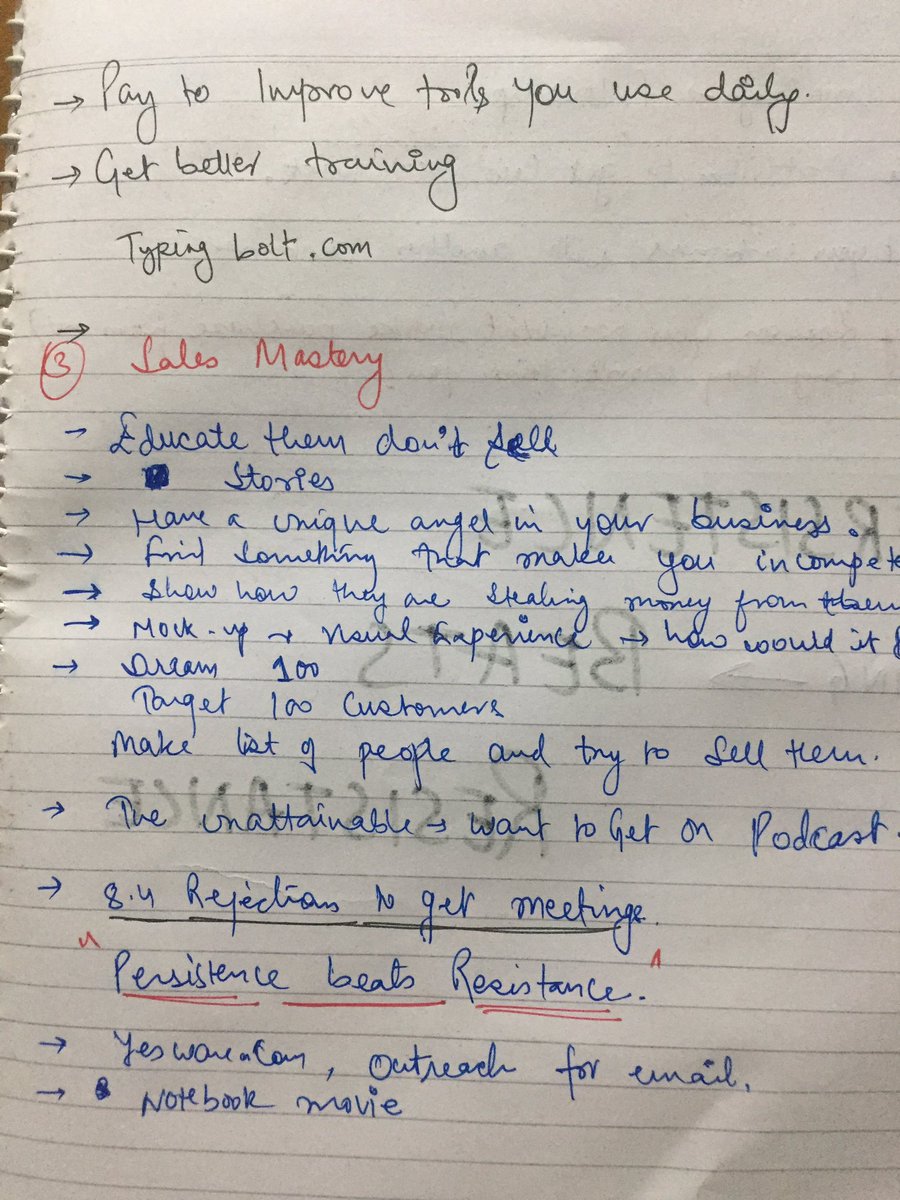 → Pay to Improve tools you use daily.
→ Get better training
Typing bolt.com
→
③ Sales Mastery
→ Educate them don't sell
→ Stories
→ Have a unique angel in your business.
→ Find something that makes you incompete
→ Show how they are stealing money from them
→ Mock-up + Visual Experience → how would it
→ Dream 100
Target 100 Customers
Make list of people and try to sell them.
→ The unattainable → want to Get on Podcast.
→ 8.4 Rejections to get meetings.
"Persistence beats Resistance."
→ Yesware.com, outreach for email.
→ Notebook movie